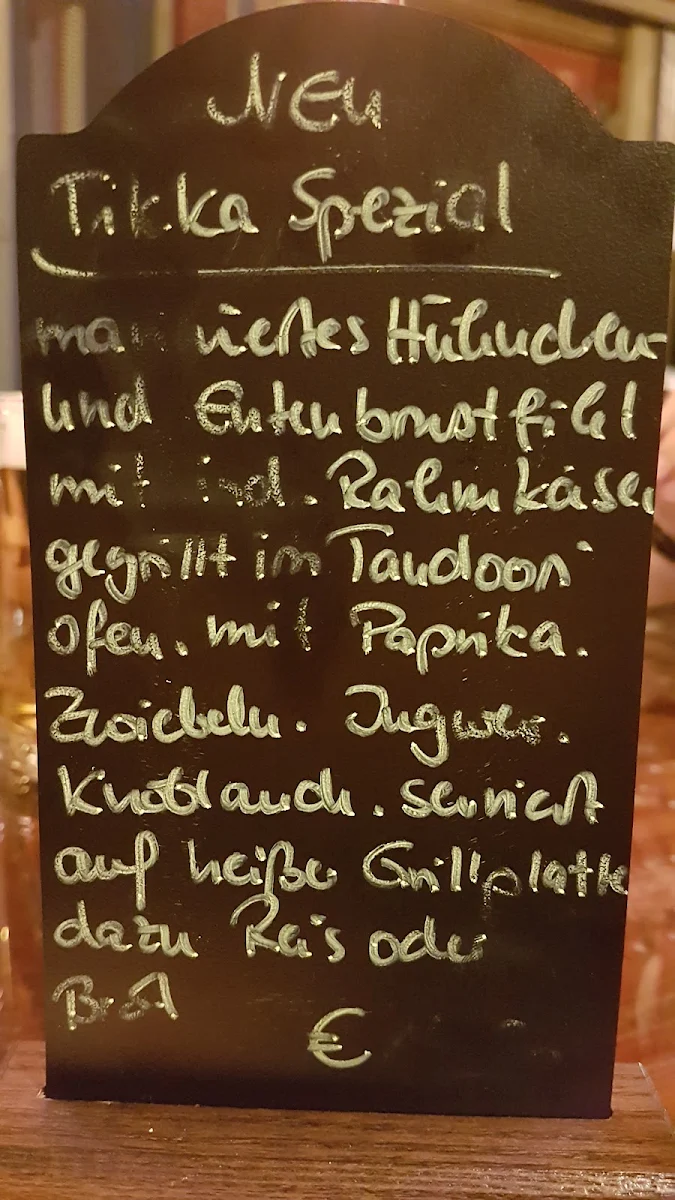 NEU
Tikka Spezial
mariniertes Hühnchen-
und Entenbrustfilet
mit ind. Rahmkäse,
gegrillt im Tandoori
Ofen. mit Paprika.
Zwiebeln. Ingwer.
Knoblauch. serviert
auf heißer Grillplatte
dazu Reis oder
Brot
€